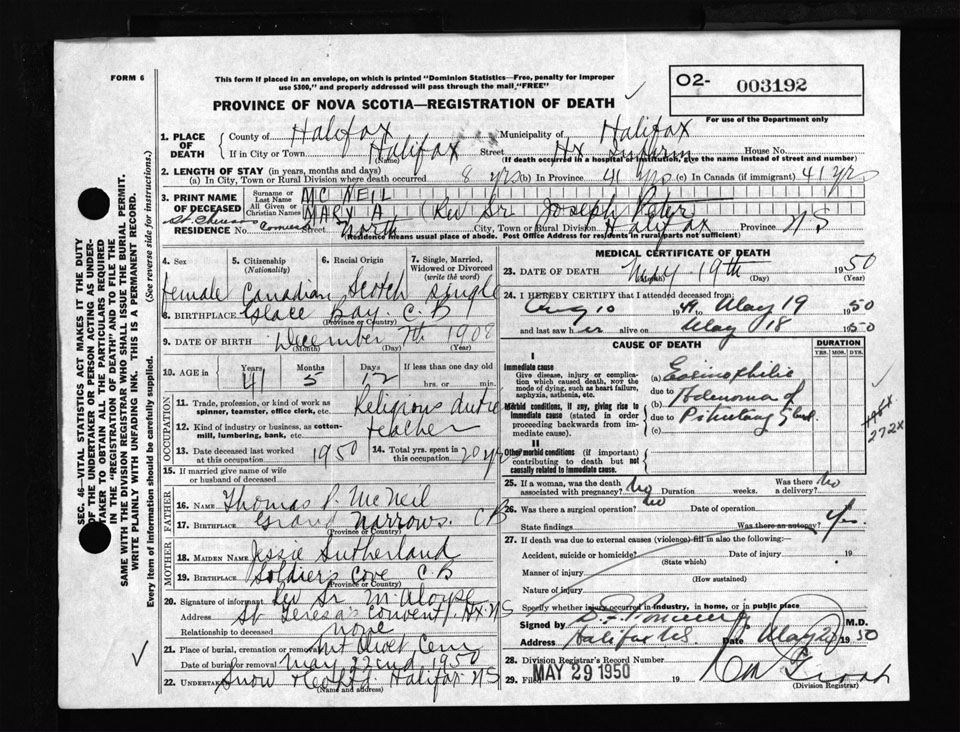 FORM 6
This form if placed in an envelope, on which is printed "Dominion Statistics—Free, penalty for improper
use $300," and properly addressed will pass through the mail, "FREE"
O2- 003192
For use of the Department only
PROVINCE OF NOVA SCOTIA—REGISTRATION OF DEATH
1. PLACE OF DEATH
County of Halifax Municipality of Halifax
If in City or Town Halifax Street Hx Infirm House No.
(Name) (If death occurred in a hospital or institution, give the name instead of street and number)
2. LENGTH OF STAY (in years, months and days)
(a) In City, Town or Rural Division where death occurred 8 yrs (b) In Province 41 yrs (c) In Canada (if immigrant) 41 yrs
3. PRINT NAME OF DECEASED
Surname or Last Name MC NEIL
All Given or Christian Names MARY A (Rev Sr Joseph Peter
RESIDENCE No. Street North City, Town or Rural Division Halifax Province NS
(Residence means usual place of abode. Post Office Address for residents in rural parts not sufficient)
4. Sex 5. Citizenship (Nationality) 6. Racial Origin 7. Single, Married, Widowed or Divorced (write the word)
Female Canadian Scotch Single
8. BIRTHPLACE Glace Bay. C.B
(Province or Country)
9. DATE OF BIRTH December 7th 1908
(Month) (Day) (Year)
10. AGE in Years 41 Months 5 Days 12 If less than one day old hrs. or min.
OCCUPATION
11. Trade, profession, or kind of work as spinner, teamster, office clerk, etc. Religious
12. Kind of industry or business, as cotton-mill, lumbering, bank, etc. teacher
13. Date deceased last worked at this occupation 1950 14. Total yrs. spent in this occupation 20 yrs
15. If married give name of wife or husband of deceased
FATHER
16. NAME Thomas P. McNeil
17. BIRTHPLACE Grand Narrows. CB
(Province or Country)
MOTHER
18. MAIDEN NAME Jessie Sutherland
19. BIRTHPLACE Soldier's Cove C.B
(Province or Country)
20. Signature of informant Rev Sr M. Aloyse
Address St Teresa's Convent, Hx. NS
Relationship to deceased none
21. Place of burial, cremation or removal Mt Olivet Cem
Date of burial or removal May 22nd, 1950
22. UNDERTAKER Snow Halifax NS
(Name and address)
MEDICAL CERTIFICATE OF DEATH
23. DATE OF DEATH May 19th 1950
(Month) (Day) (Year)
24. I HEREBY CERTIFY that I attended deceased from:
Aug 10 1949 to May 19 1950
and last saw her alive on May 18 1950
CAUSE OF DEATH DURATION
YRS. MOS. DYS.
I
Immediate cause
Give disease, injury or complication which caused death, NOT the mode of dying, such as heart failure, asphyxia, asthenia, etc.
(a) Eosinophilic
due to
Morbid conditions, if any, giving rise to immediate cause (stated in order proceeding backwards from immediate cause).
(b) Adenoma of
due to Pituitary
(c)
272X
II
Other morbid conditions (if important) contributing to death but not causally related to immediate cause.
25. If a woman, was the death associated with pregnancy? No Duration weeks. Was there a delivery? No
26. Was there a surgical operation? No Date of operation
State findings Was there an autopsy? Yes
27. If death was due to external causes (violence) fill in also the following:
Accident, suicide or homicide? Date of injury 19
(State which)
Manner of injury
(How sustained)
Nature of injury
Specify whether injury occurred in industry, in home, or in public place
Signed by M.D.
Address Halifax NS Date May 1950
28. Division Registrar's Record Number
29. Filed MAY 29 1950 19
(Division Registrar)
SEC. 46—VITAL STATISTICS ACT MAKES IT THE DUTY
OF THE UNDERTAKER OR PERSON ACTING AS UNDER-
TAKER TO OBTAIN ALL THE PARTICULARS REQUIRED
IN THE "REGISTRATION OF DEATH" AND TO FILE THE
SAME WITH THE DIVISION REGISTRAR WHO SHALL ISSUE THE BURIAL PERMIT.
WRITE PLAINLY WITH UNFADING INK. THIS IS A PERMANENT RECORD.
Every item of information should be carefully supplied. (See reverse side for instructions.)